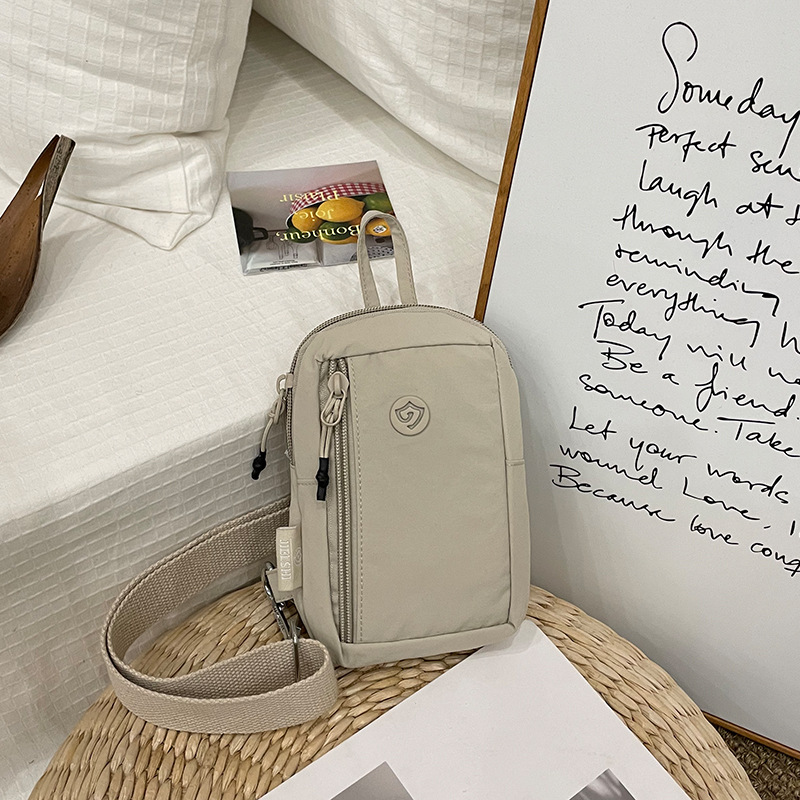 Someday
Perfect sen
laugh at t
through the
reminding
everything h
Today will
Be a friend.
someone. Take
Let your words
wound Love, I
Because love conq
Plaisir
Joie,
Bonheur,